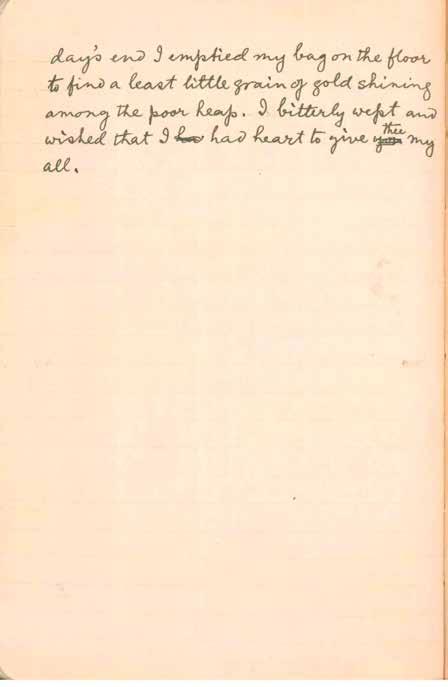 day's end I emptied my bag on the floor
to find a least little grain of gold shining
among the poor heap. I bitterly wept and
wished that I had heart to give thee my
all.